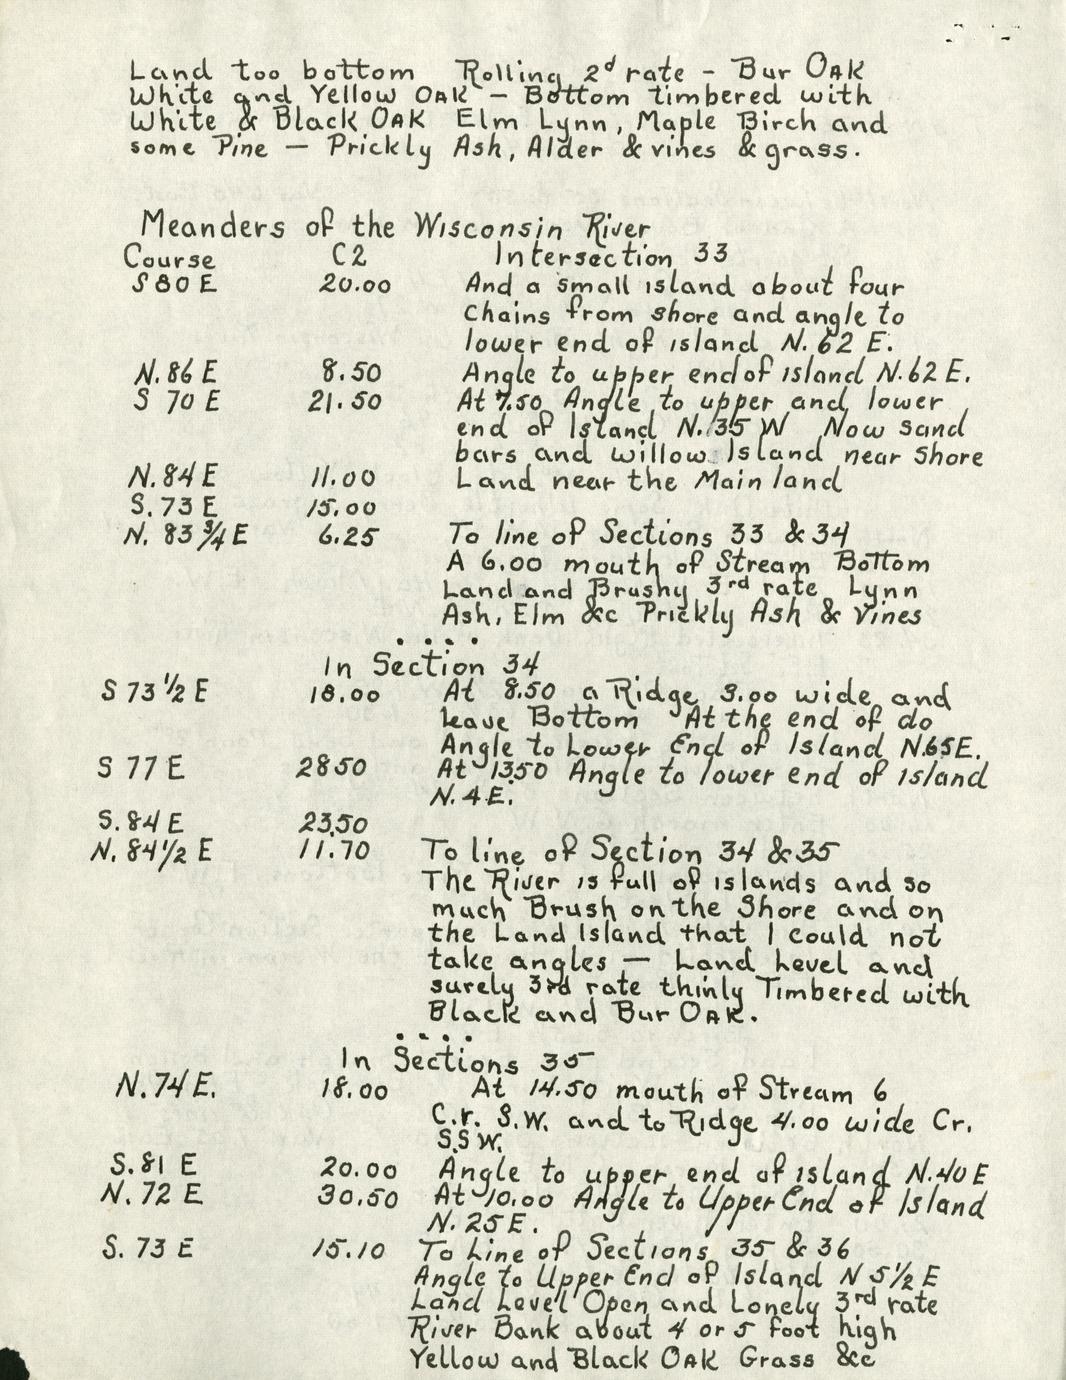 Land too bottom Rolling 2d rate - Bur Oak
White and Yellow Oak - Bottom timbered with
White & Black Oak Elm Lynn, Maple Birch and
some Pine - Prickly Ash, Alder & vines & grass.
Meanders of the Wisconsin River
Course C2 Intersection 33
S 80 E 20.00 And a small island about four
chains from shore and angle to
lower end of island N. 62 E.
N. 86 E 8.50 Angle to upper end of island N. 62 E.
S 70 E 21.50 At 7.50 Angle to upper and lower
end of Island N. 35 W Now sand
bars and willow Island near shore
N. 84 E 11.00 Land near the Main land
S. 73 E 15.00
N. 83 3/4 E 6.25 To line of Sections 33 & 34
A 6.00 mouth of Stream Bottom
Land and Brushy 3rd rate Lynn
Ash, Elm &c Prickly Ash & Vines
....
In Section 34
S 73 1/2 E 18.00 At 8.50 a Ridge 3.00 wide and
leave Bottom At the end of do
Angle to Lower End of Island N.65E.
S 77 E 2850 At 1350 Angle to lower end of island
N. 4 E.
S. 84 E 23.50
N. 84 1/2 E 11.70 To line of Section 34 & 35
The River is full of islands and so
much Brush on the Shore and on
the Land Island that I could not
take angles - Land Level and
surely 3rd rate thinly Timbered with
Black and Bur Oak.
....
In Sections 35
N. 74 E. 18.00 At 14.50 mouth of Stream 6
C.r. S.W. and to Ridge 4.00 wide Cr.
S.S W.
S. 81 E 20.00 Angle to upper end of island N.40 E
N. 72 E 30.50 At 10.00 Angle to Upper End of Island
N. 25 E.
S. 73 E 15.10 To Line of Sections 35 & 36
Angle to Upper End of Island N 5 1/2 E
Land Level Open and Lonely 3rd rate
River Bank about 4 or 5 foot high
Yellow and Black Oak Grass &c